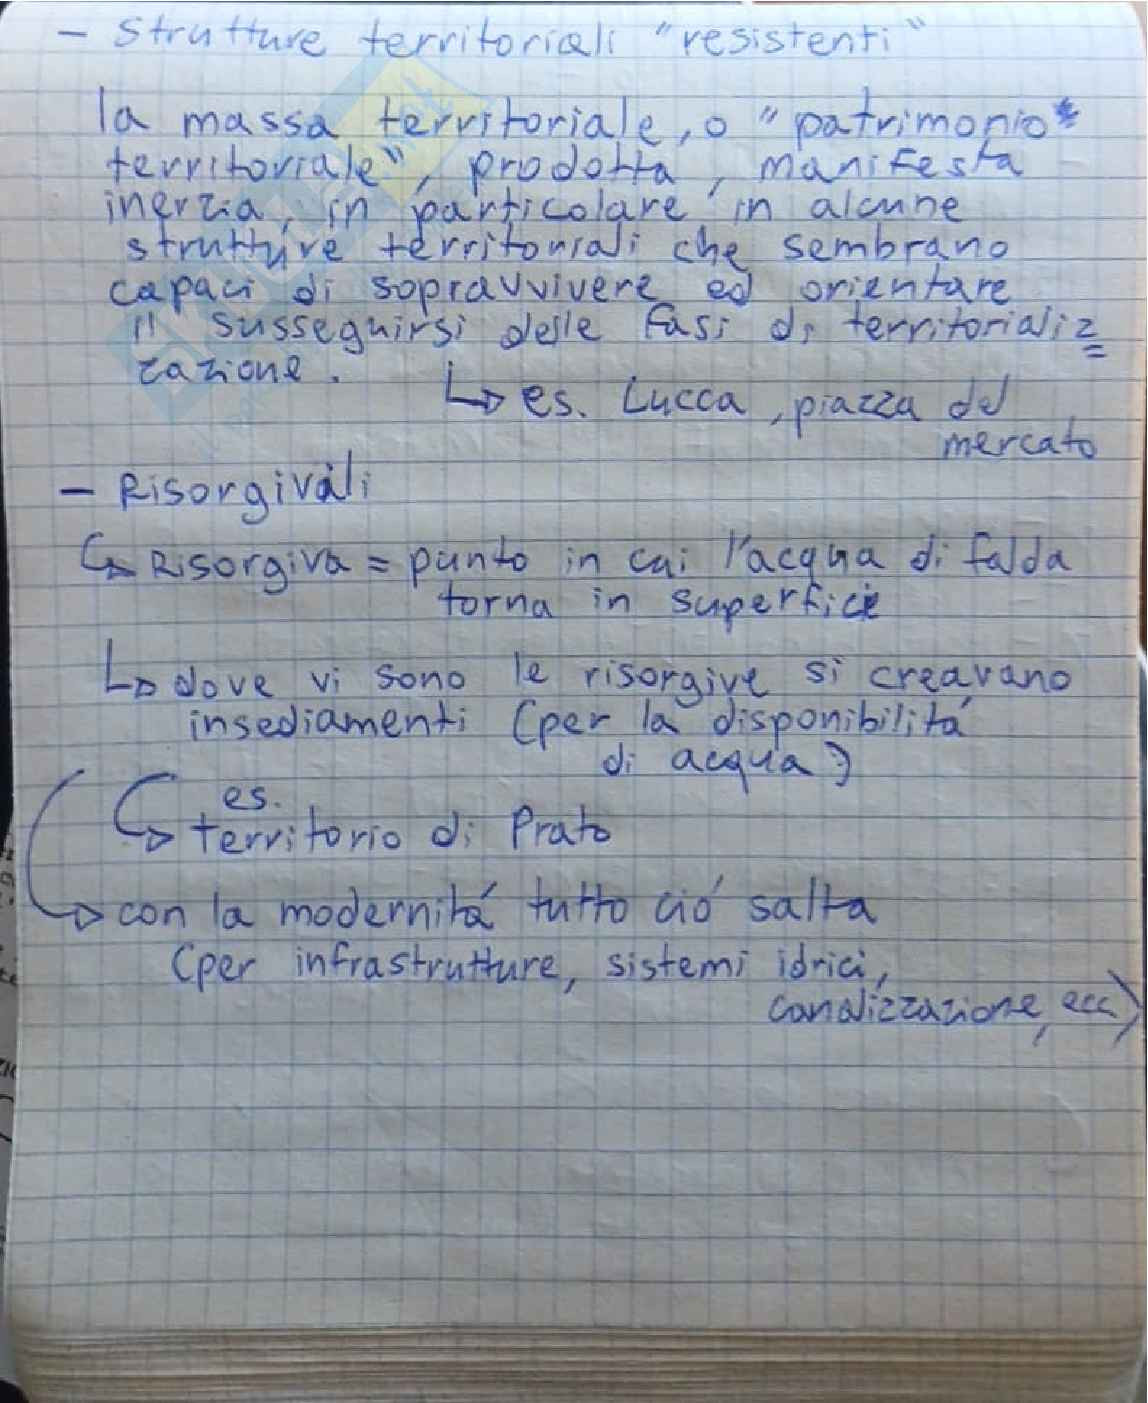 - Strutture territoriali "resistenti"
la massa territoriale, o "patrimonio
territoriale", prodotta, manifesta
inerzia, in particolare in alcune
strutture territoriali che sembrano
capaci di sopravvivere ed orientare
il susseguirsi delle fasi di territorializ=
zazione.
↳ es. Lucca, piazza del
mercato
- Risorgivali
↳ Risorgiva = punto in cui l'acqua di falda
torna in superfice
↳ dove vi sono le risorgive si creavano
insediamenti (per la disponibilitá
di acqua)
es.
↳ territorio di Prato
↳ con la modernitá tutto ció salta
(per infrastrutture, sistemi idrici,
canalizzazione, ecc)